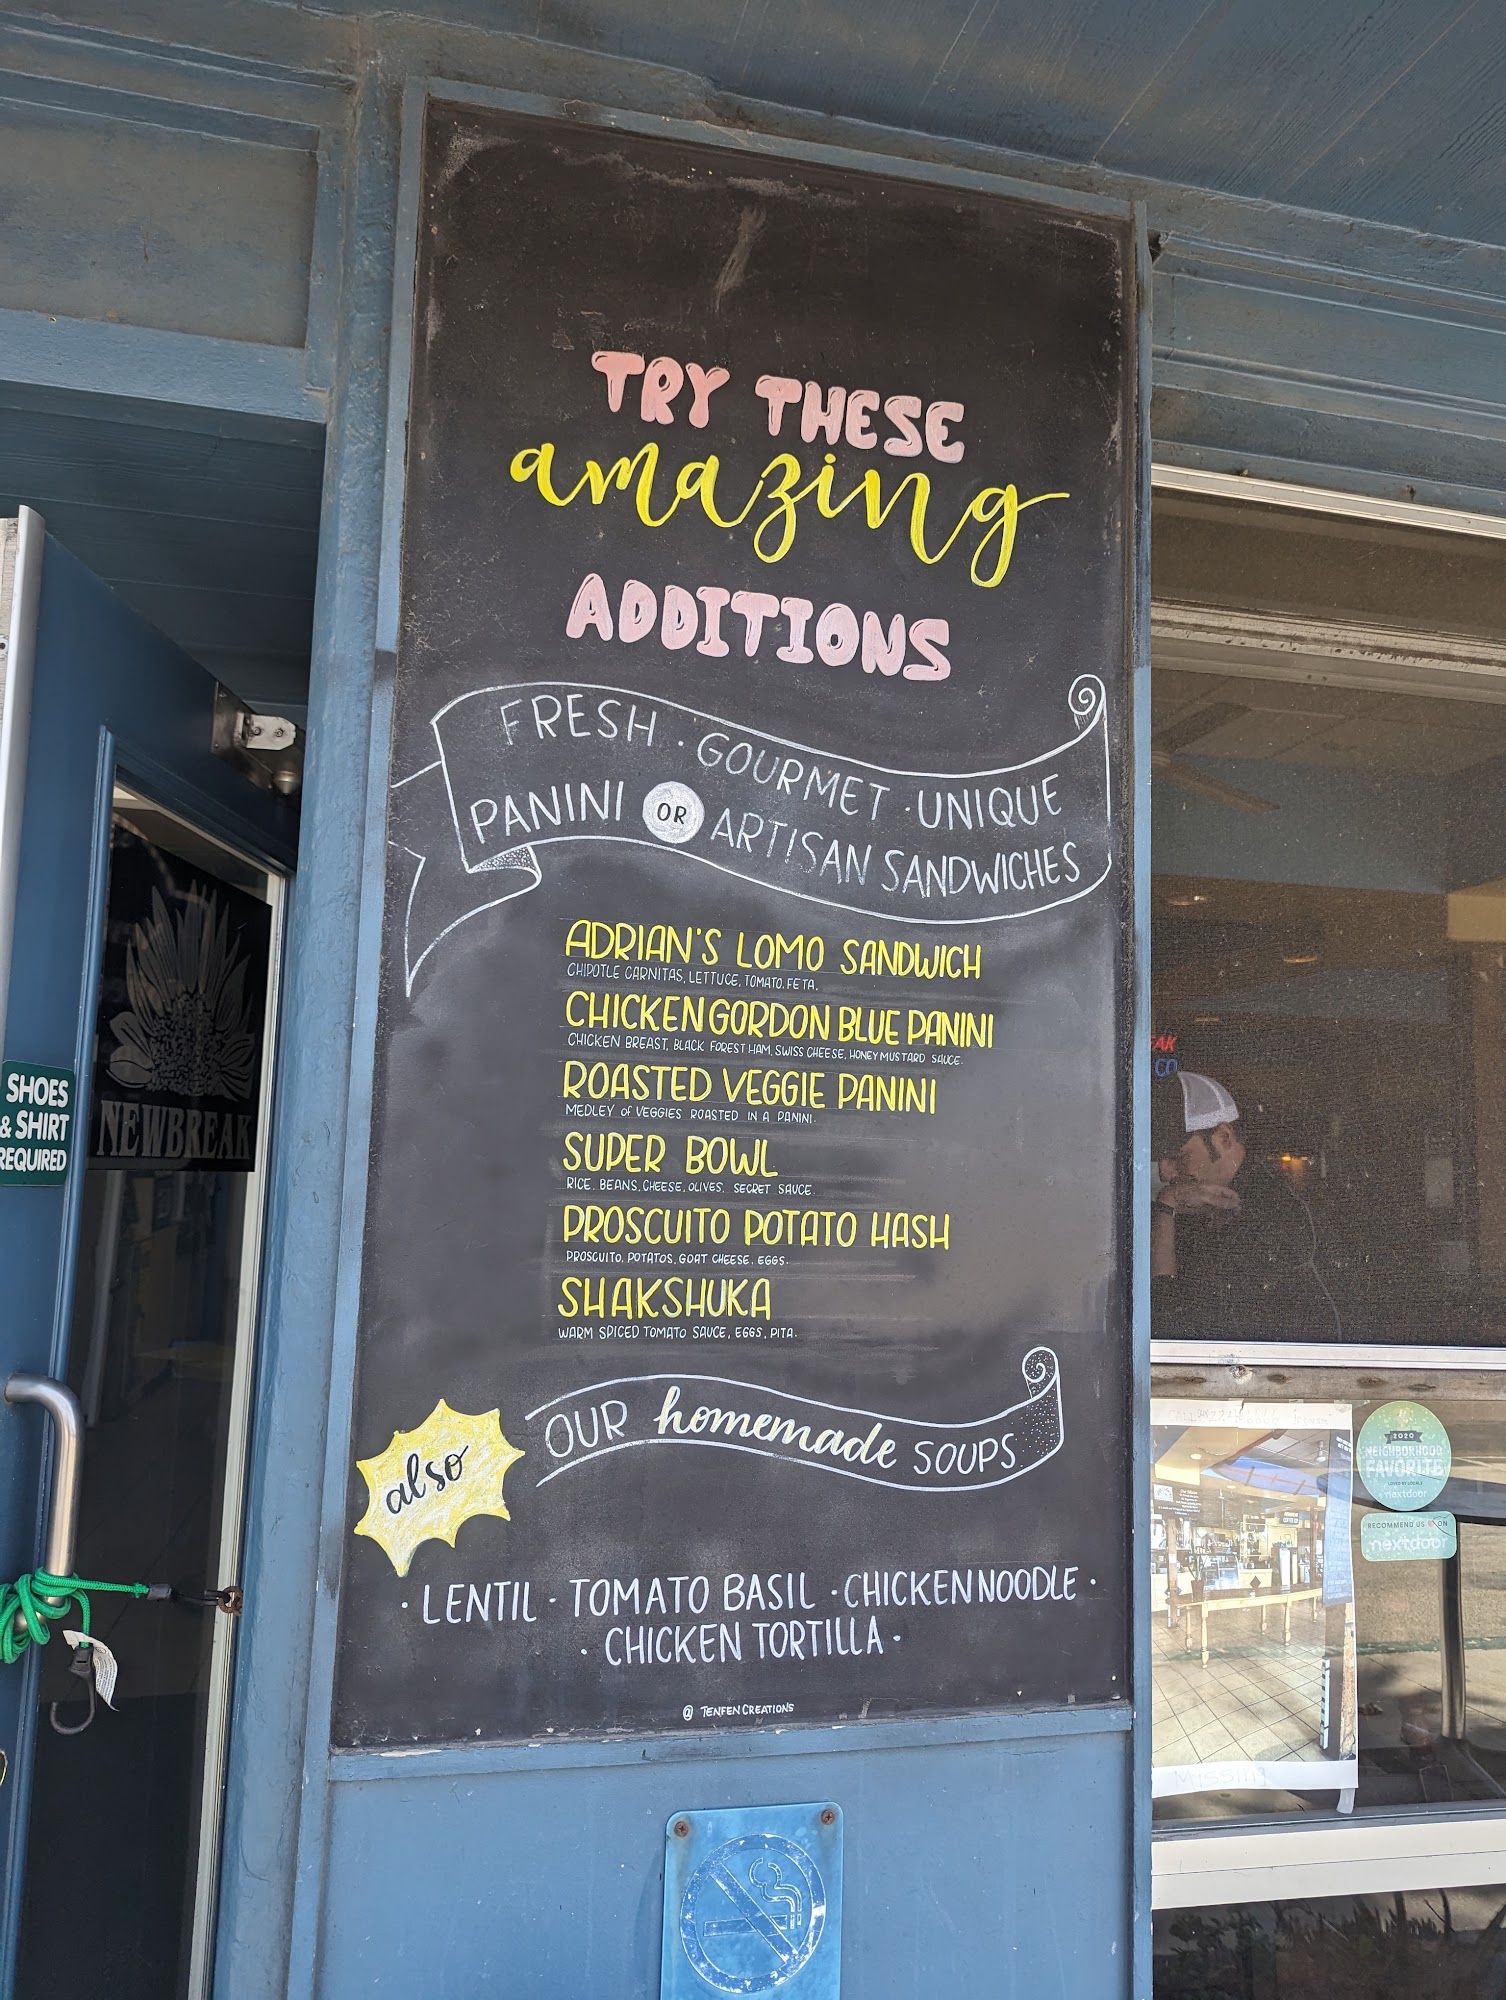 TRY THESE
amazing
ADDITIONS
FRESH · GOURMET · UNIQUE
PANINI OR ARTISAN SANDWICHES
ADRIAN'S LOMO SANDWICH
CHIPOTLE CARNITAS, LETTUCE, TOMATO, FETA.
CHICKEN GORDON BLUE PANINI
CHICKEN BREAST, BLACK FOREST HAM, SWISS CHEESE, HONEY MUSTARD SAUCE.
ROASTED VEGGIE PANINI
MEDLEY of VEGGIES ROASTED IN A PANINI.
SUPER BOWL
RICE, BEANS, CHEESE, OLIVES, SECRET SAUCE.
PROSCUITO POTATO HASH
PROSCUITO, POTATOS, GOAT CHEESE, EGGS.
SHAKSHUKA
WARM SPICED TOMATO SAUCE, EGGS, PITA.
also
OUR homemade SOUPS
· LENTIL · TOMATO BASIL · CHICKEN NOODLE ·
· CHICKEN TORTILLA ·
@ TENFEN CREATIONS
SHOES
& SHIRT
REQUIRED
NEWBREAK
2020
NEIGHBORHOOD
FAVORITE
LOVED BY LOCALS
nextdoor
RECOMMEND US ON
nextdoor
Missing